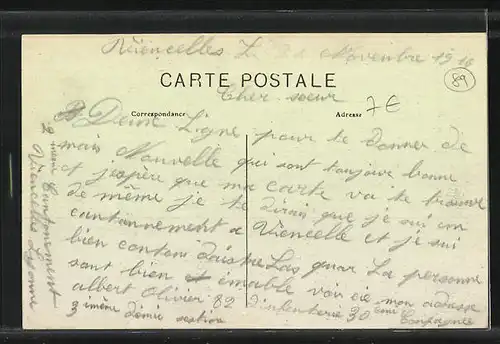 Viencelles Le Novembre 1916
CARTE POSTALE
89
Cher soeur
7€
Correspondance
Adresse
Deux Ligne pour te Donner de
mais Nouvelle qui sont toujour bonne
et jespère que ma carte va te trouver
de même je te dirais que je sui en
cantonnement a Viencelle et je sui
bien contan Las guar La personne
sont bien et aimable voi cie mon adresse
albert Olivier 82 dinfenterie 30 eme Compagnie
3 ième demie section
2 ième Cantonnement
Viencelles Lyonne